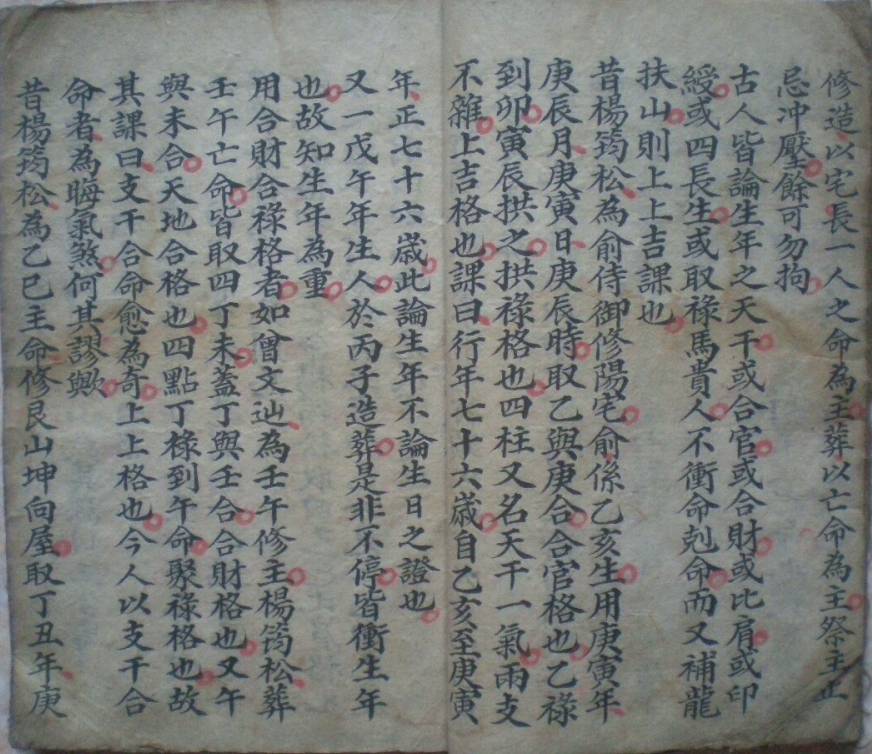 修造以宅長一人之命為主葬以亡命為主祭主止
忌冲壓餘可勿拘
古人皆論生年之天干或合官或合財或比肩或印
綬或四長生或取祿馬貴人不衝命剋命而又補龍
扶山則上上吉課也
昔楊筠松為俞侍御修陽宅俞係乙亥生用庚寅年
庚辰月庚寅日庚辰時取乙與庚合合官格也乙祿
到卯寅辰拱之拱祿格也四柱又名天干一氣兩支
不雜上吉格也課曰行年七十六歲自乙亥至庚寅
年正七十六歲此論生年不論生日之證也
又一戊午年生人於丙子造葬是非不停皆衝生年
也故知生年為重
用合財合祿格者如曾文辿為壬午修主楊筠松葬
壬午亡命皆取四丁未蓋丁與壬合合財格也又午
與未合天地合格也四點丁祿到午命聚祿格也故
其課曰支干合命愈為奇上上格也今人以支干合
命者為晦氣煞何其謬歟
昔楊筠松為乙巳主命修艮山坤向屋取丁丑年庚